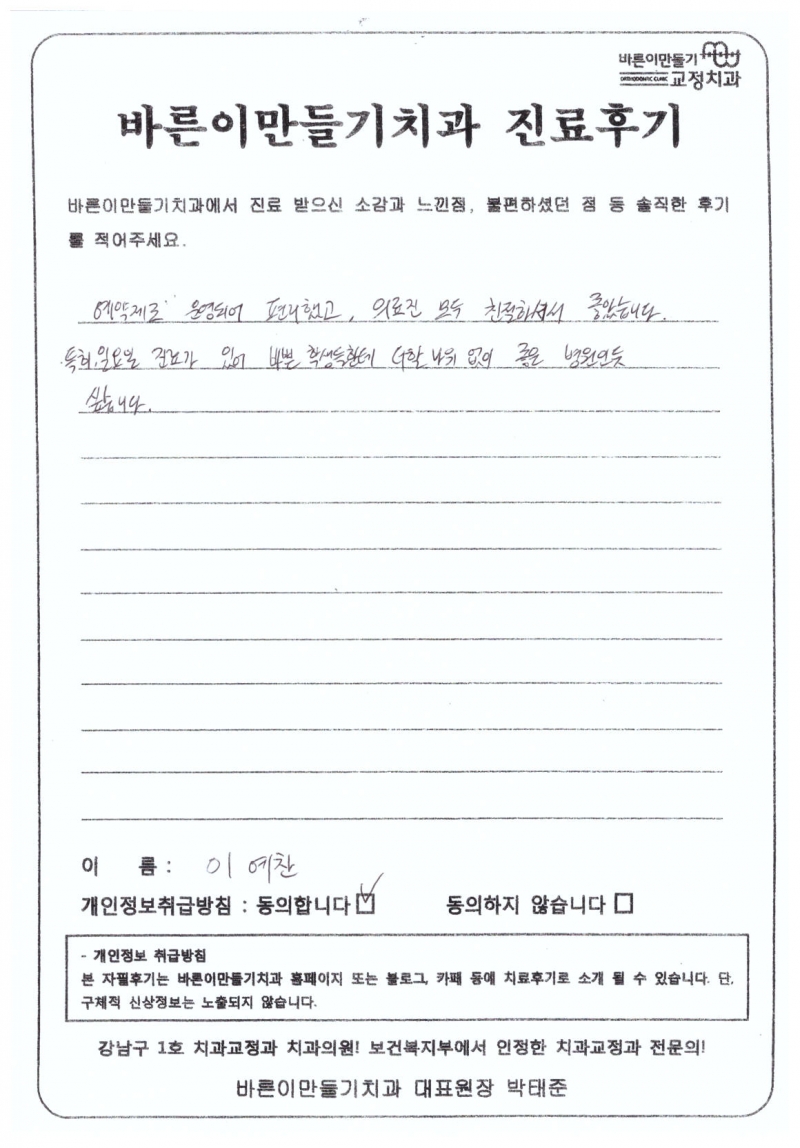 바른이만들기
ORTHODONTIC CLINIC 교정치과
바른이만들기치과 진료후기
바른이만들기치과에서 진료 받으신 소감과 느낀점, 불편하셨던 점 등 솔직한 후기
를 적어주세요.
예약제로 운영되어 편리했고, 의료진 모두 친절하셔서 좋았습니다.
특히, 일요일 진료가 있어 바쁜 학생들한테 더할 나위 없이 좋은 병원인듯
싶습니다.
이 름 : 이예찬
개인정보취급방침 : 동의합니다 ☑ 동의하지 않습니다 □
- 개인정보 취급방침
본 자필후기는 바른이만들기치과 홈페이지 또는 블로그, 카페 등에 치료후기로 소개 될 수 있습니다. 단,
구체적 신상정보는 노출되지 않습니다.
강남구 1호 치과교정과 치과의원! 보건복지부에서 인정한 치과교정과 전문의!
바른이만들기치과 대표원장 박태준